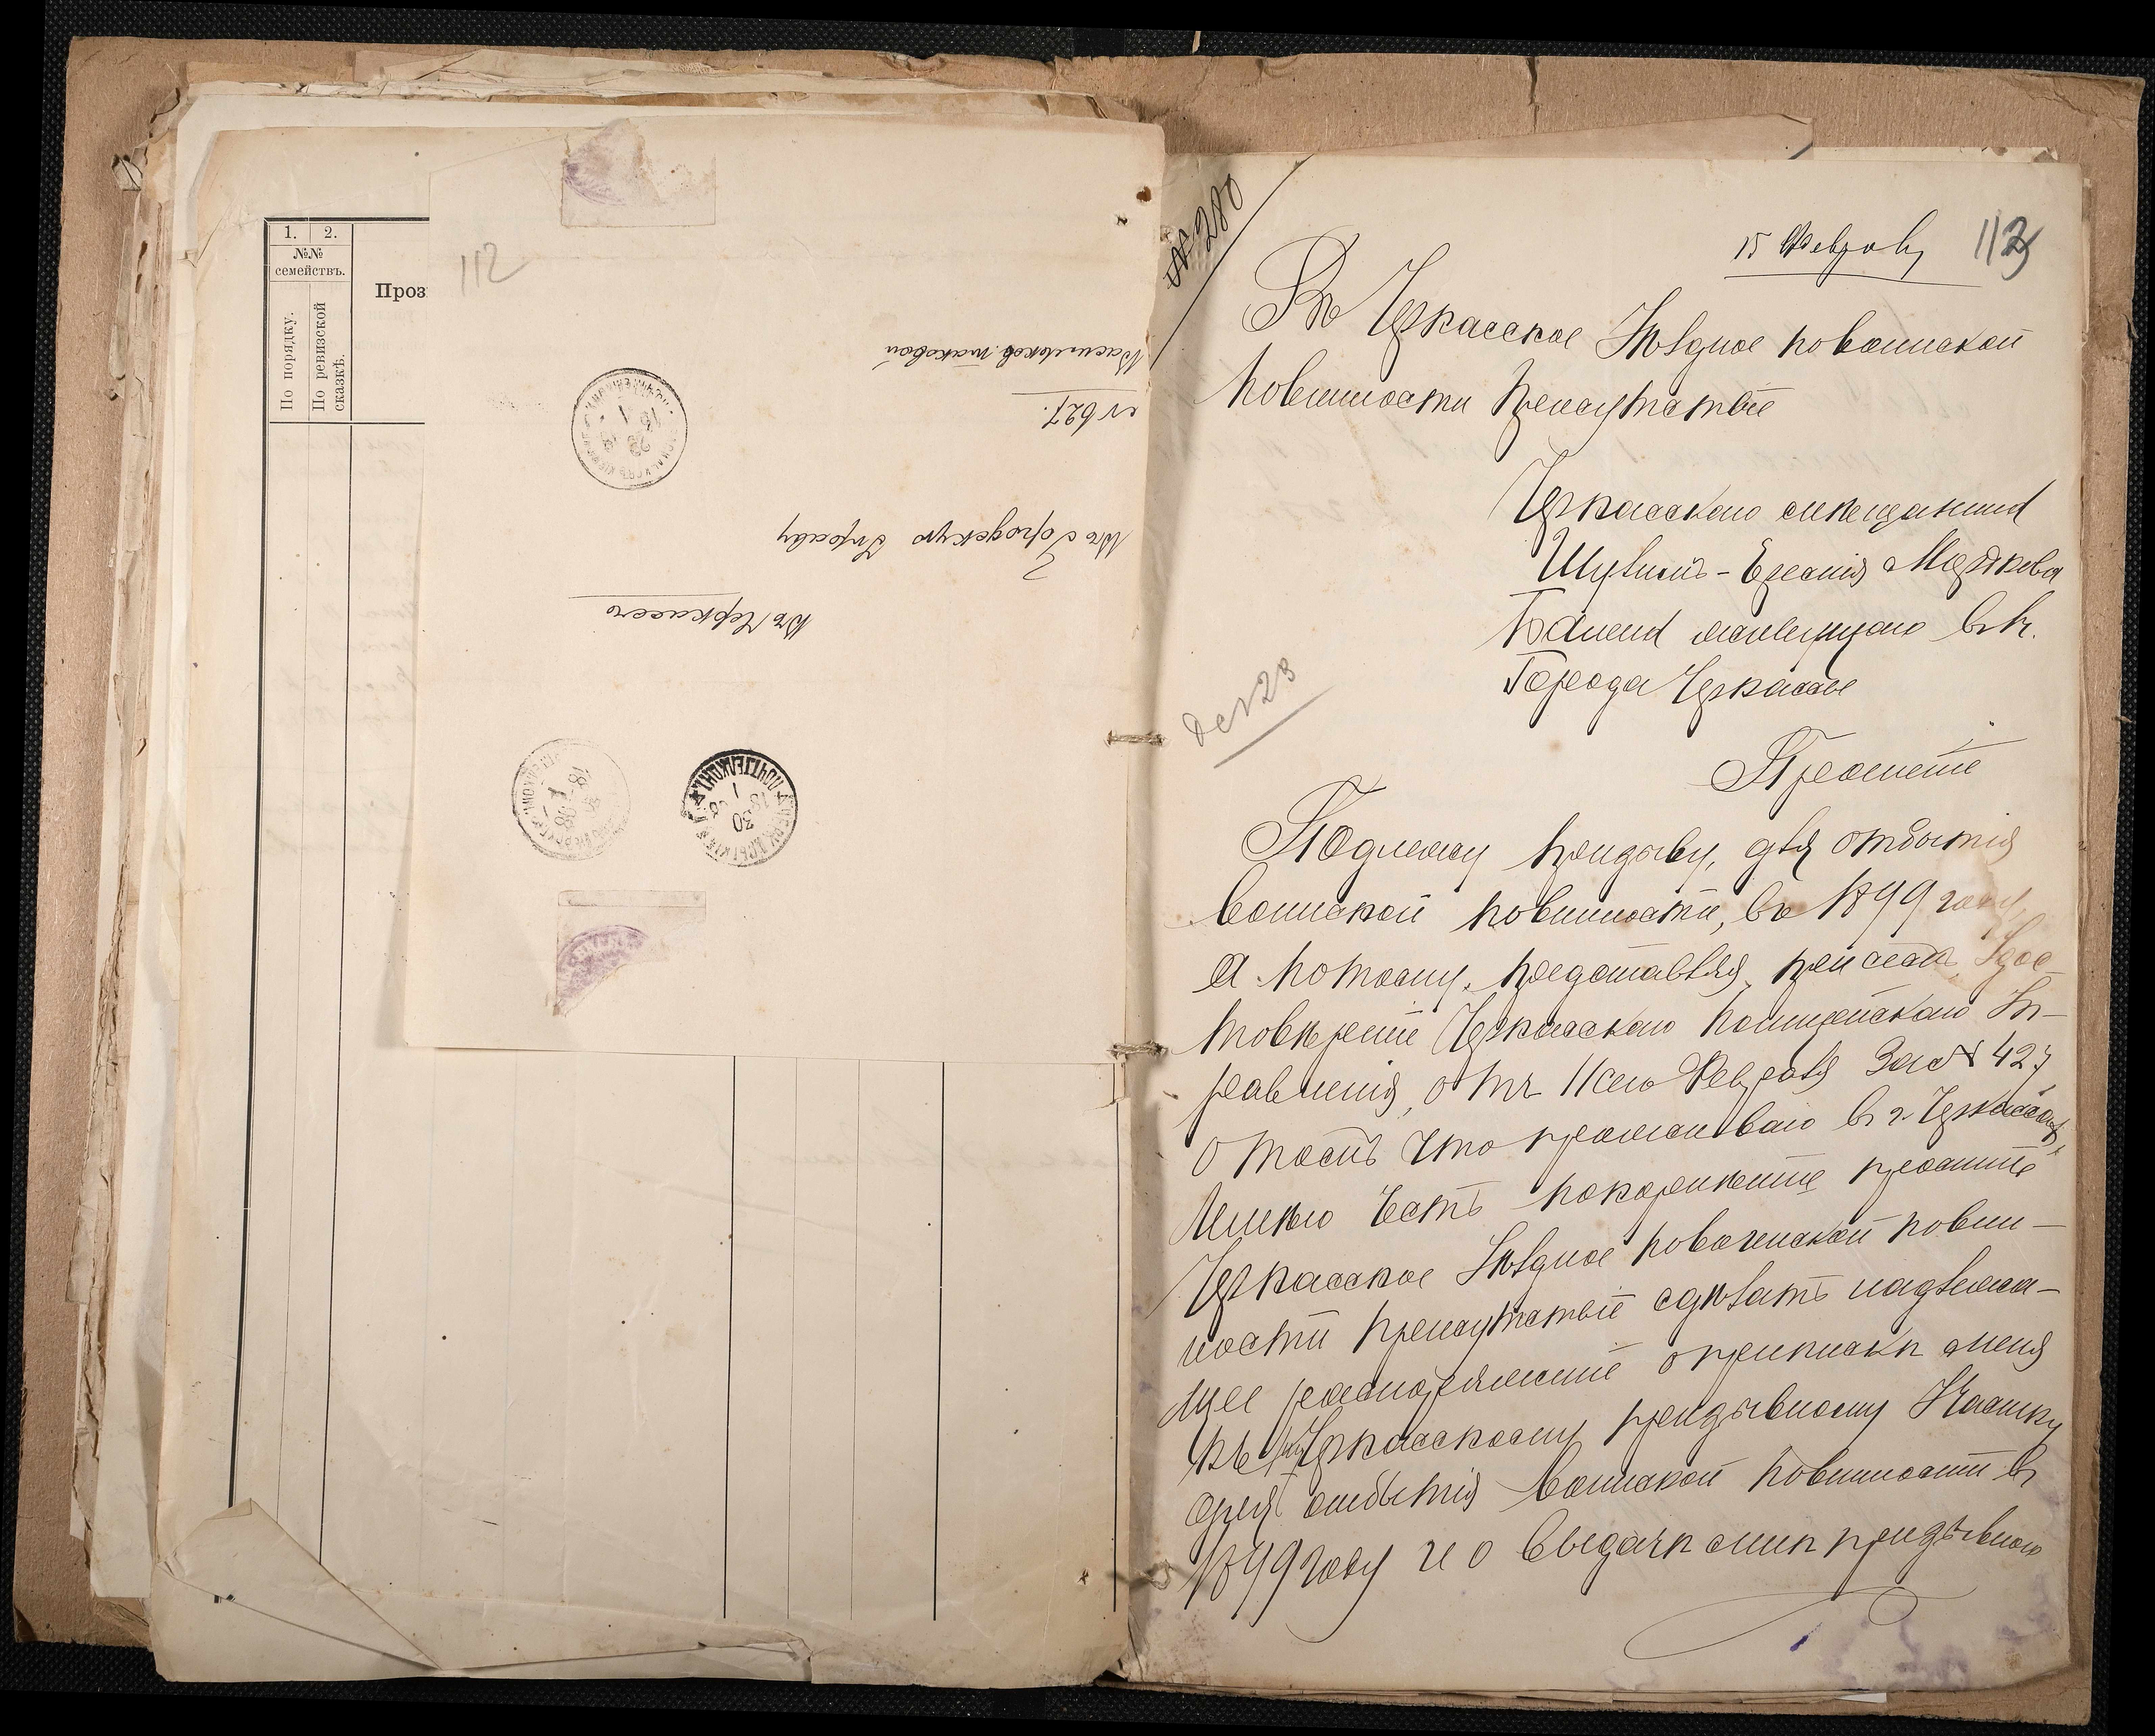 1. 2.
№№
семействъ.
По порядку.
По ревизской
сказкѣ.
Проз
112
Въ Черкассы
Въ Городскую Управу
№ 627.
№ 280
15 Февраля
113
Въ Черкасское Уѣздное по воинской
повинности Присутствіе
Черкасскаго мѣщанина
города Черкассы
Прошеніе
Подлежу призыву, для отбытія
воинской повинности, въ 1899 году,
а потому, представляя, при семъ, Удос-
товѣреніе Черкасскаго Полицейскаго Уп-
равленія, отъ 11 сего Февраля за № 427
о томъ что проживаю въ г. Черкассахъ,
Имѣю честь покорнѣйше просить
Черкасское Уѣздное по воинской повин-
ности присутствіе сдѣлать надлежа-
щее распоряженіе о припискѣ меня
къ Черкасскому призывному Участку
для отбытія воинской повинности въ
1899 году и о выдачѣ мнѣ призывного